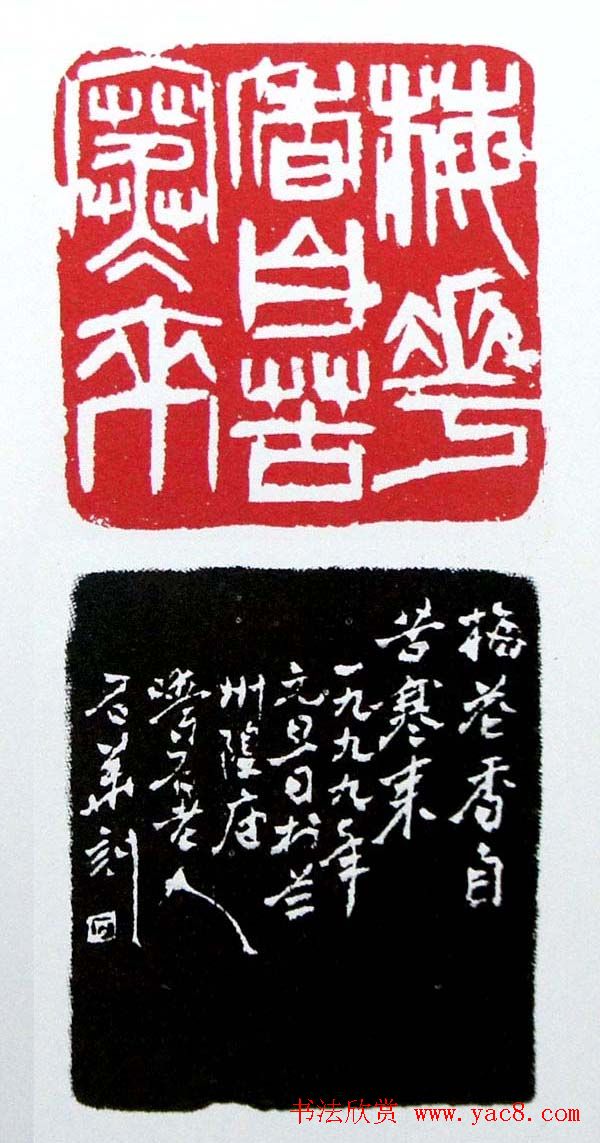 梅花
香自苦
寒来
梅花香自
苦寒来
一九九九年
元旦日於兰
州隍庙
石老人
石华刻
书法欣赏 www.yac8.com